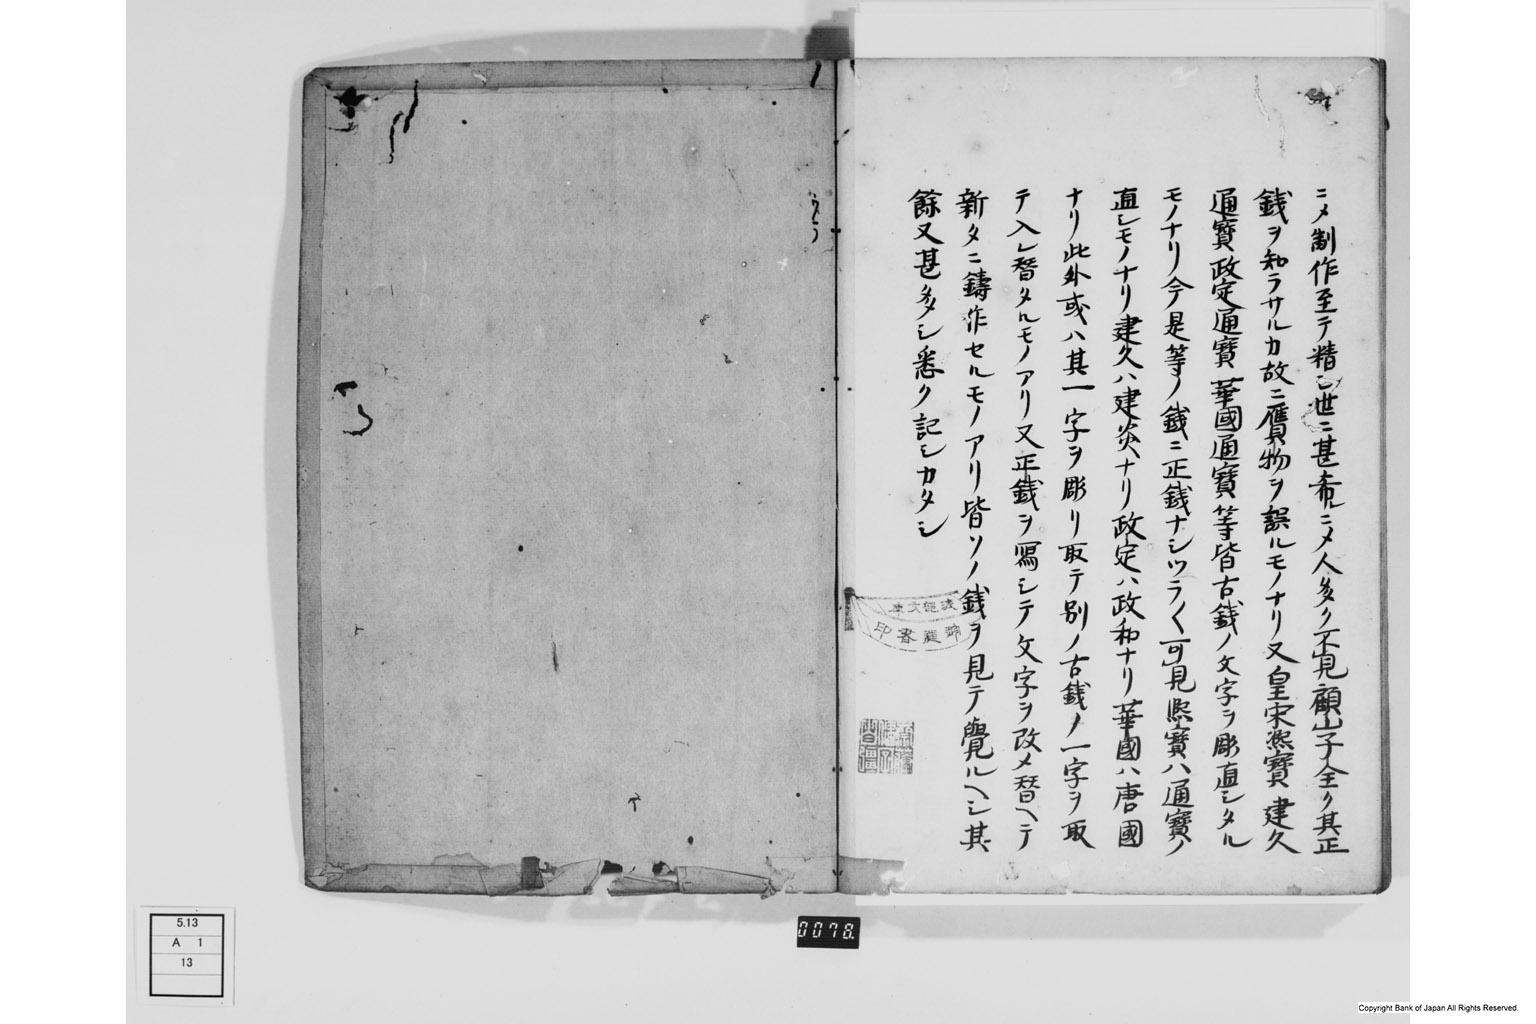 ニメ制作至テ精シ世ニ甚希ルニメ人多ク不見顧山子全ク其正
銭ヲ知ラサルカ故ニ贋物ヲ誤ルモノナリ又皇宋熈寳建久
通寳政定通寳華國通寳等皆古銭ノ文字ヲ彫直シタル
モノナリ今是等ノ銭ニ正銭ナシツラ〱可見熈寳ハ通寳ノ
直シモノナリ建久ハ建炎ナリ政定ハ政和ナリ華國ハ唐國
ナリ此外或ハ其一字ヲ彫リ取テ別ノ古銭ノ一字ヲ取
テ入レ替タルモノアリ又正銭ヲ寫シテ文字ヲ改メ替ヘテ
新タニ鑄作セルモノアリ皆ソノ銭ヲ見テ覺ルヘシ其
餘又甚多シ悉ク記シカタシ
5.13
A 1
13
0078.
Copyright Bank of Japan All Rights Reserved.